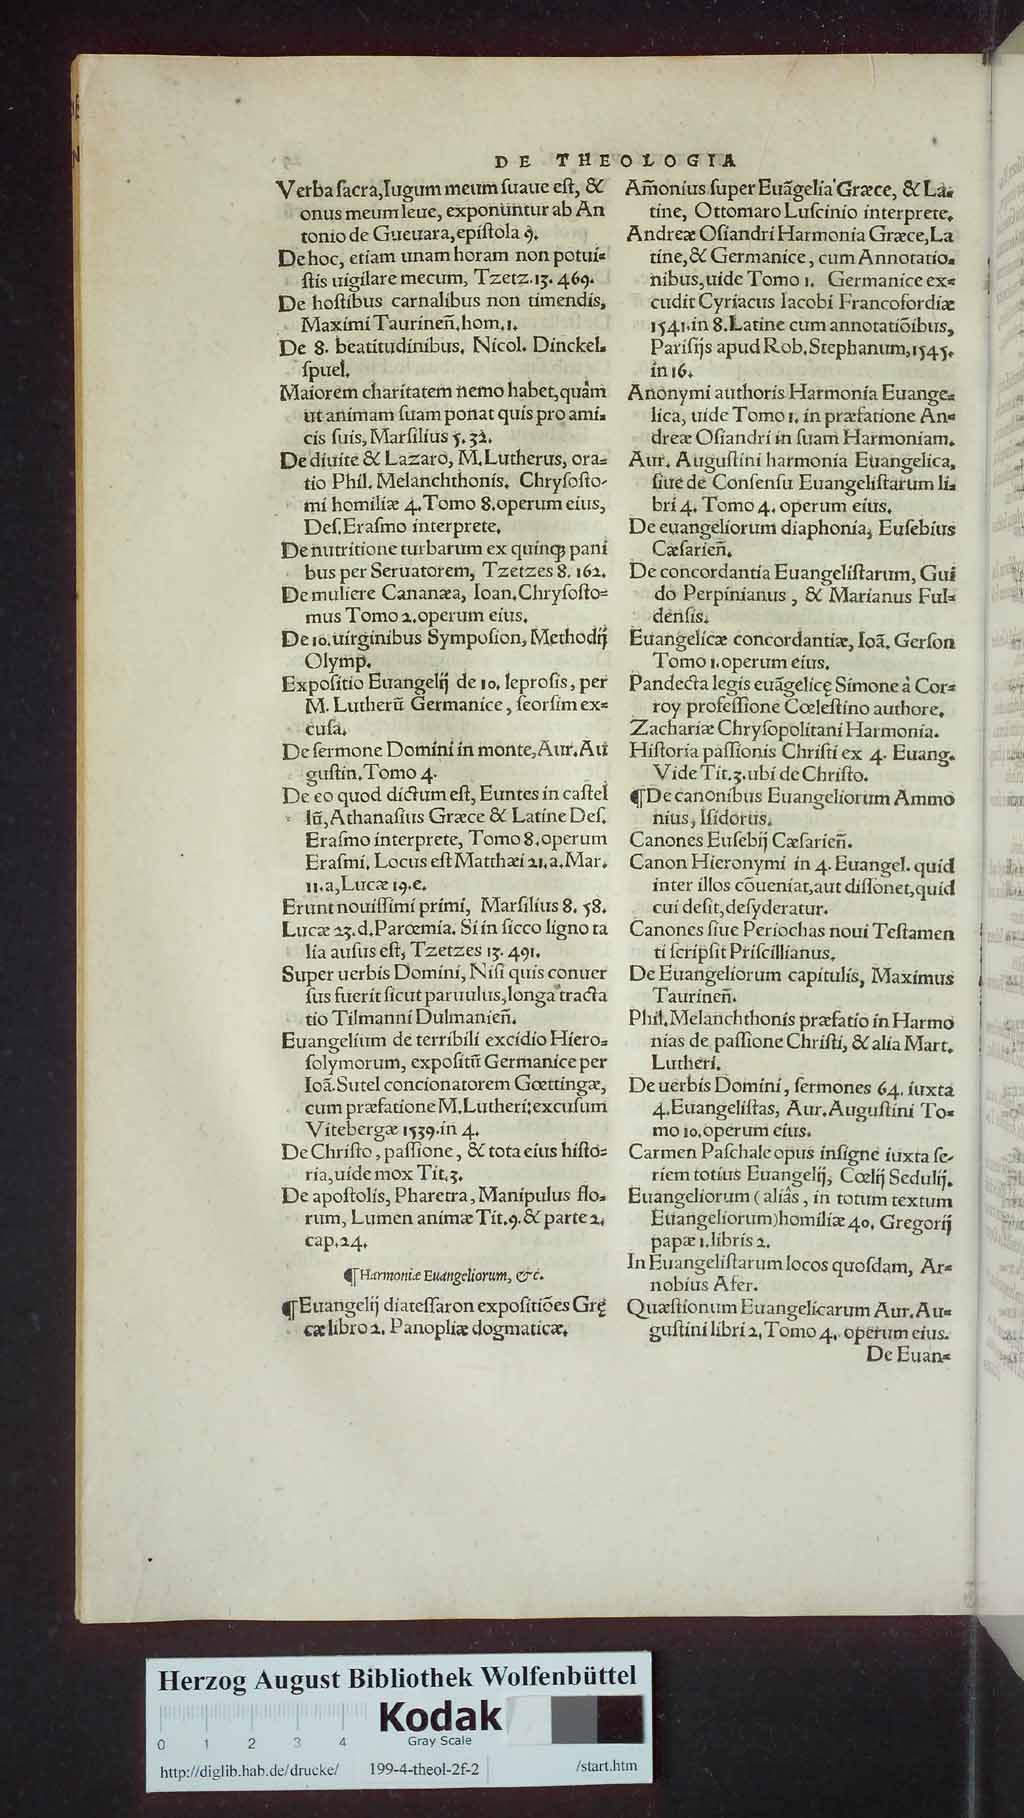 DE THEOLOGIA
Verba ſacra, Iugum meum ſuaue eſt, &
onus meum leue, exponuntur ab An
tonio de Gueuara, epiſtola 9.
De hoc, etiam unam horam non potui-
ſtis uigilare mecum, Tzetz. 13. 469.
De hoſtibus carnalibus non timendis,
Maximi Taurineñ. hom. 1.
De 8. beatitudinibus, Nicol. Dinckel-
ſpuel.
Maiorem charitatem nemo habet, quàm
ut animam ſuam ponat quis pro ami-
cis ſuis, Marſilius 5. 32.
De diuite & Lazaro, M. Lutherus, ora-
tio Phil. Melanchthonis. Chryſoſto-
mi homiliæ 4. Tomo 8. operum eius,
Deſ. Eraſmo interprete.
De nutritione turbarum ex quinqꝫ pani
bus per Seruatorem, Tzetzes 8. 162.
De muliere Cananæa, Ioan. Chryſoſto-
mus Tomo 2. operum eius.
De 10. uirginibus Sympoſion, Methodij
Olymp.
Expoſitio Euangelij de 10. leproſis, per
M. Lutherũ Germanice, ſeorſim ex-
cuſa.
De ſermone Domini in monte, Aur. Au
guſtin. Tomo 4.
De eo quod dictum eſt, Euntes in caſtel
lũ, Athanaſius Græce & Latine Deſ.
Eraſmo interprete, Tomo 8. operum
Eraſmi. Locus eſt Matthæi 21. a. Mar.
11. a, Lucæ 19. e.
Erunt nouiſſimi primi, Marſilius 8. 58.
Lucæ 23. d. Parœmia. Si in ſicco ligno ta
lia auſus eſt, Tzetzes 13. 491.
Super uerbis Domini, Niſi quis conuer
ſus fuerit ſicut paruulus, longa tracta
tio Tilmanni Dulmanieñ.
Euangelium de terribili excidio Hiero-
ſolymorum, expoſitũ Germanice per
Ioã. Sutel concionatorem Gœttingæ,
cum præfatione M. Lutheri: excuſum
Vitebergæ 1539. in 4.
De Chriſto, paſſione, & tota eius hiſto-
ria, uide mox Tit. 3.
De apoſtolis, Pharetra, Manipulus flo-
rum, Lumen animæ Tit. 9. & parte 2.
cap. 24.
¶ Harmoniæ Euangeliorum, &c.
¶ Euangelij diateſſaron expoſitiões Grę
cæ libro 2. Panopliæ dogmaticæ.
Am̃onius ſuper Euãgelia Græce, & La-
tine, Ottomaro Luſcinio interprete.
Andreæ Oſiandri Harmonia Græce, La
tine, & Germanice, cum Annotatio-
nibus, uide Tomo 1. Germanice ex-
cudit Cyriacus Iacobi Francofordiæ
1541. in 8. Latine cum annotatiõibus,
Pariſijs apud Rob. Stephanum, 1545.
in 16.
Anonymi authoris Harmonia Euange-
lica, uide Tomo 1. in præfatione An-
dreæ Oſiandri in ſuam Harmoniam.
Aur. Auguſtini harmonia Euangelica,
ſiue de Conſenſu Euangeliſtarum li-
bri 4. Tomo 4. operum eius.
De euangeliorum diaphonia, Euſebius
Cæſarieñ.
De concordantia Euangeliſtarum, Gui
do Perpinianus, & Marianus Ful-
denſis.
Euangelicæ concordantiæ, Ioã. Gerſon
Tomo 1. operum eius.
Pandecta legis euãgelicę Simone à Cor-
roy profeſſione Cœleſtino authore.
Zachariæ Chryſopolitani Harmonia.
Hiſtoria paſſionis Chriſti ex 4. Euang.
Vide Tit. 3. ubi de Chriſto.
¶ De canonibus Euangeliorum Ammo
nius, Iſidorus.
Canones Euſebij Cæſarieñ.
Canon Hieronymi in 4. Euangel. quid
inter illos cõueniat, aut diſſonet, quid
cui deſit, deſyderatur.
Canones ſiue Periochas noui Teſtamen
ti ſcripſit Priſcillianus.
De Euangeliorum capitulis, Maximus
Taurineñ.
Phil. Melanchthonis præfatio in Harmo
nias de paſſione Chriſti, & alia Mart.
Lutheri.
De uerbis Domini, ſermones 64. iuxta
4. Euangeliſtas, Aur. Auguſtini To-
mo 10. operum eius.
Carmen Paſchale opus inſigne iuxta ſe-
riem totius Euangelij, Cœlij Sedulij.
Euangeliorum (aliâs, in totum textum
Euangeliorum) homiliæ 40. Gregorij
papæ 1. libris 2.
In Euangeliſtarum locos quoſdam, Ar-
nobius Afer.
Quæſtionum Euangelicarum Aur. Au-
guſtini libri 2. Tomo 4. operum eius.
De Euan-
Herzog August Bibliothek Wolfenbüttel
Kodak
Gray Scale
0 1 2 3 4
http://diglib.hab.de/drucke/ 199-4-theol-2f-2 /start.htm